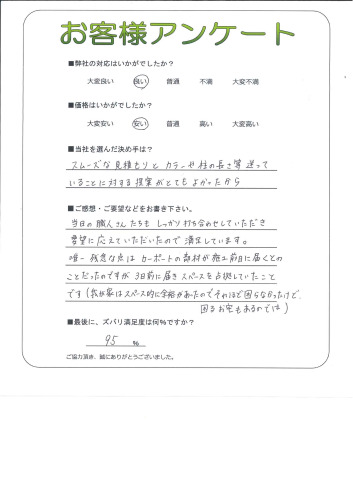 お客様アンケート
■弊社の対応はいかがでしたか？
大変良い 良い 普通 不満 大変不満
■価格はいかがでしたか？
大変安い 安い 普通 高い 大変高い
■当社を選んだ決め手は？
スムーズな見積もりとカラーや柱の長さ等迷って
いることに対する提案がとてもよかったから
■ご感想・ご要望などをお書き下さい。
当日の職人さんたちもしっかり打ち合わせしていただき
要望に応えていただいたので満足しています。
唯一残念な点はカーポートの部材が施工前日に届くとの
ことだったのですが3日前に届きスペースを占拠していたこと
です(我が家はスペース的に余裕があったのでそれほど困らなかったけど、
困るお宅もあるのでは)
■最後に、ズバリ満足度は何％ですか？
95 ％
ご協力頂き、誠にありがとうございました。